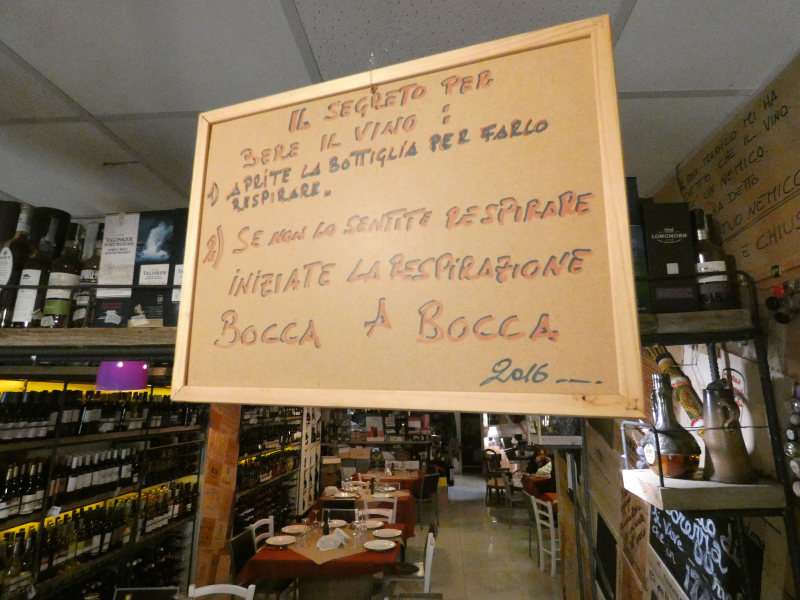 IL SEGRETO PER
BERE IL VINO:
1) APRITE LA BOTTIGLIA PER FARLO
RESPIRARE.
2) SE NON LO SENTITE RESPIRARE
INIZIATE LA RESPIRAZIONE
BOCCA A BOCCA
2016
TALISKER
TALISKER
LONGMORN
MEDICO MI HA
DETTO CHE IL VINO
UN NEMICO.
HA DETTO
TUO NEMICO
E CHIUS